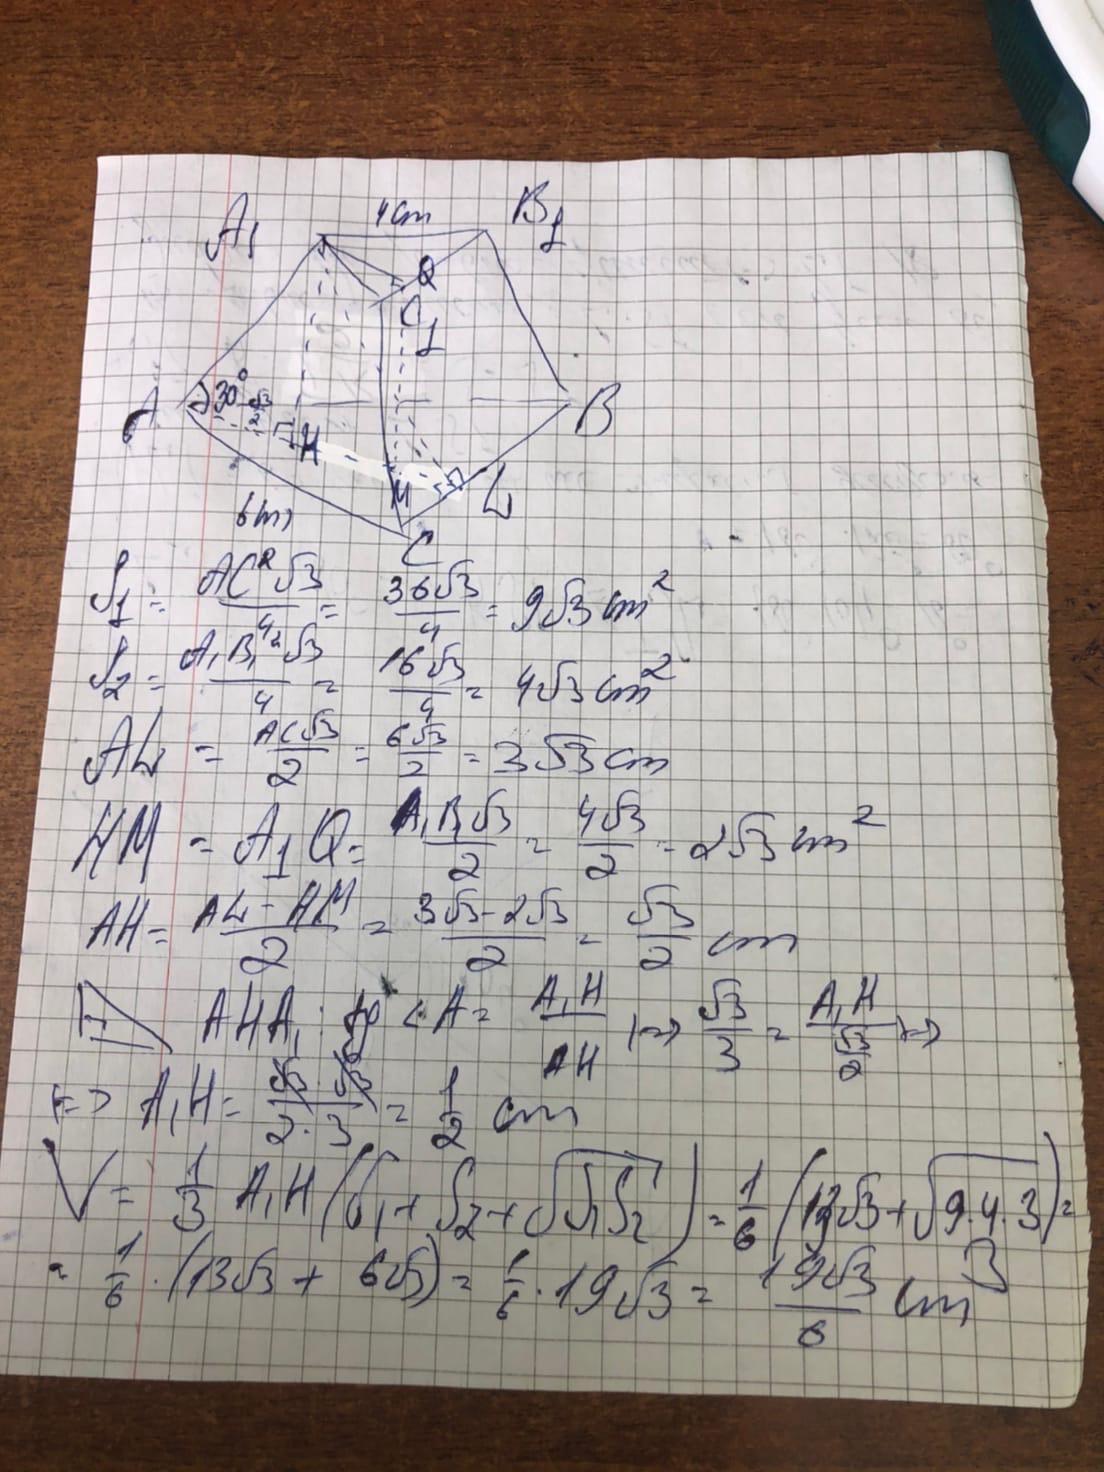 A₁ 4cm B₁
Q
C₁
A 30° √3/2 H B
M L
6cm
C
S₁ = AC²√3/4 = 36√3/4 = 9√3 cm²
S₂ = A₁B₁²√3/4 = 16√3/4 = 4√3 cm²
AL = AC√3/2 = 6√3/2 = 3√3 cm
HM = A₁Q = A₁B₁√3/2 = 4√3/2 = 2√3 cm²
AH = AL - HM/2 = 3√3 - 2√3/2 = √3/2 cm
AHA₁: tg <A = A₁H/AH |=> √3/3 = A₁H/(√3/2) |=>
|=> A₁H = √3·√3/2·3 = 1/2 cm
V = 1/3 A₁H (S₁ + S₂ + √S₁S₂) = 1/6 (13√3 + √9·4·3) =
= 1/6 · (13√3 + 6√3) = 1/6 · 19√3 = 19√3/6 cm³